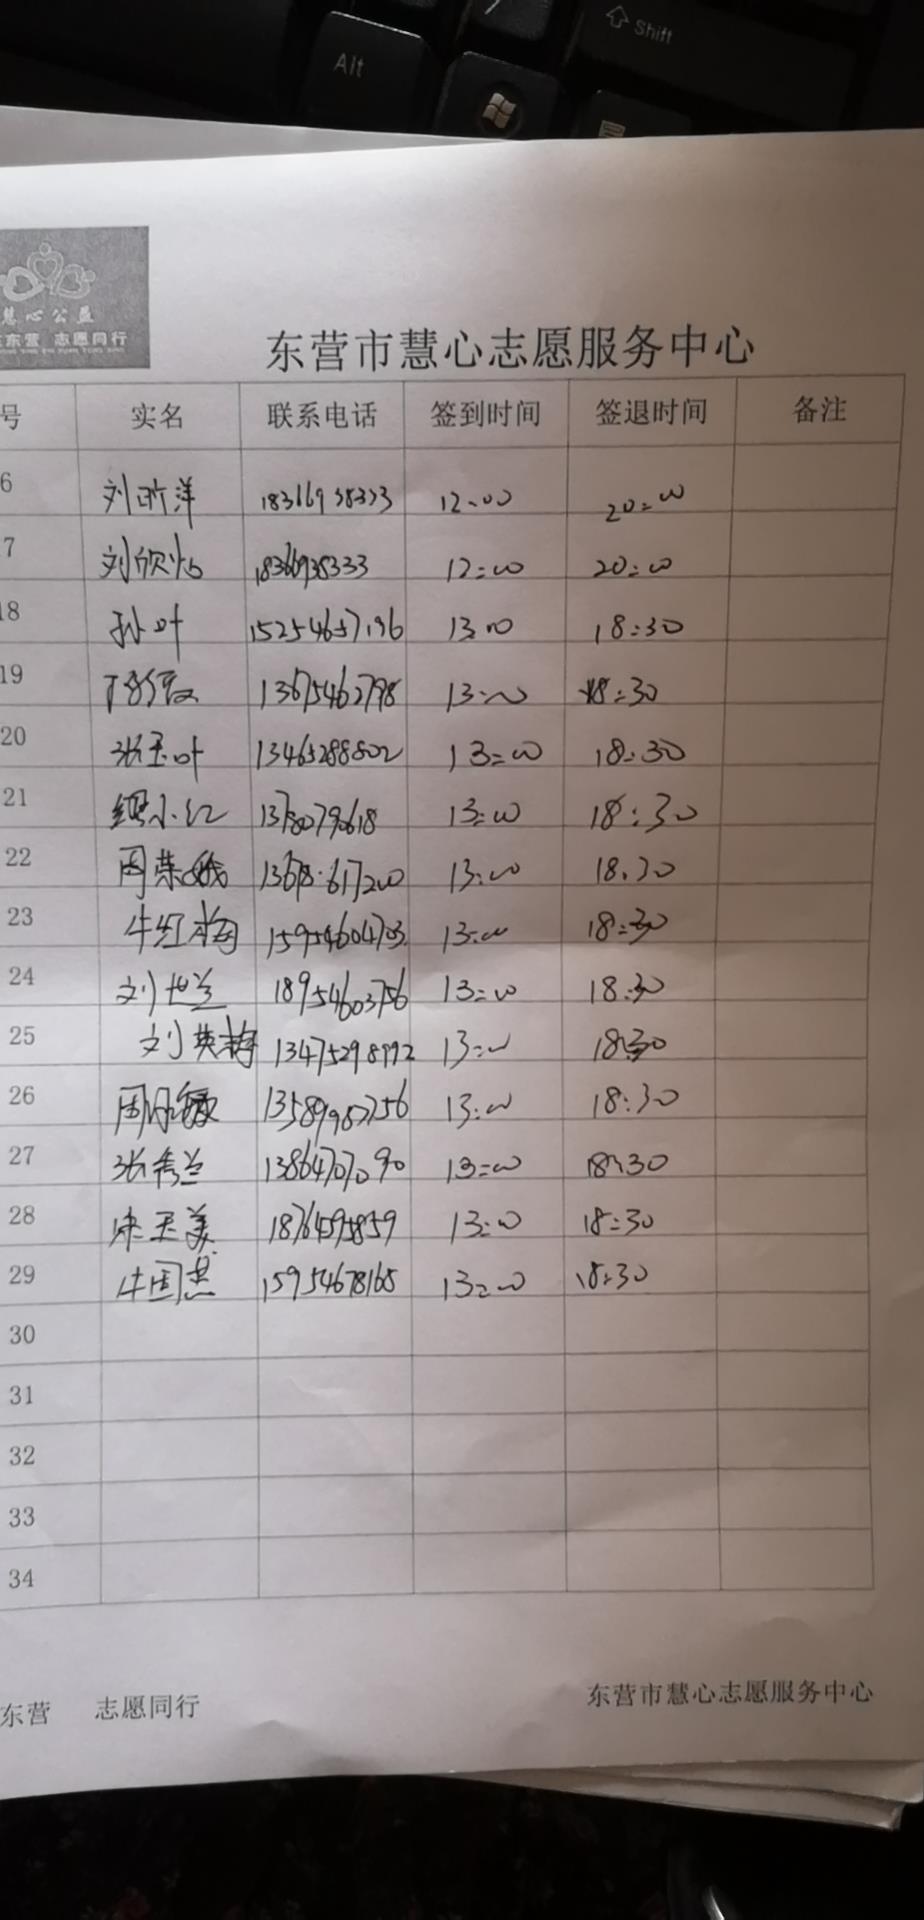 Alt
Shift
慧心公益
东营 志愿同行
东营市慧心志愿服务中心
号 实名 联系电话 签到时间 签退时间 备注
6 刘昕洋 18366938333 12:00 20:00
7 刘欣灿 18366938333 12:00 20:00
18 孙叶 15254657196 13:00 18:30
19 13675462798 13:00 18:30
20 张玉叶 13465288802 13:00 18:30
21 小红 13:00 18:30
22 周荣 13:00 18:30
23 牛红梅 15954604703 13:00 18:30
24 刘世兰 18954603756 13:00 18:30
25 刘英梅 13:00 18:30
26 周 13:00 18:30
27 张秀兰 13864707090 13:00 18:30
28 宋玉美 18764595859 13:00 18:30
29 牛国燕 15954678165 13:00 18:30
30
31
32
33
34
东营 志愿同行 东营市慧心志愿服务中心